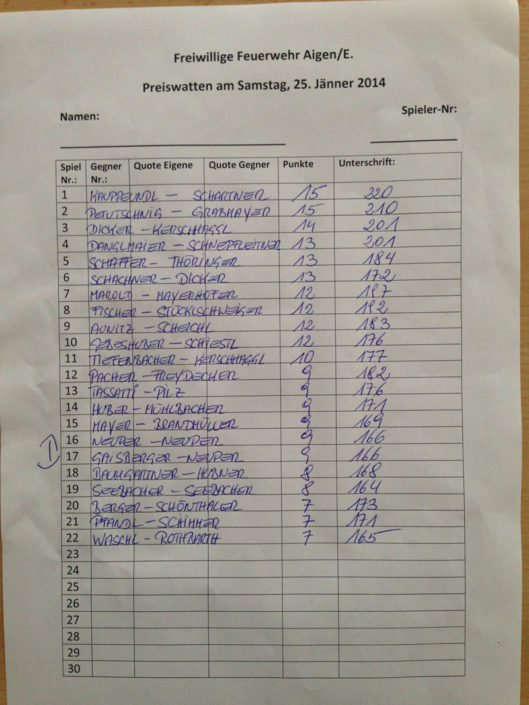 Freiwillige Feuerwehr Aigen/E.
Preiswatten am Samstag, 25. Jänner 2014
Namen: Spieler-Nr:
Spiel Nr.: Gegner Nr.: Quote Eigene Quote Gegner Punkte Unterschrift:
1 KAUPFEUNDL – SCHARTNER 15 220
2 PEUTSCHNIG – GRABMAYER 15 210
3 DICKER – KERSCHHAGGL 14 201
4 DANGLMAIER – SCHNEPFLEITNER 13 201
5 SCHAFFER – THÖRINGER 13 184
6 SCHACHNER – DICKER 13 172
7 MAROLD – MAYERHOFER 12 197
8 FISCHER – STÖCKLSCHWEIGER 12 192
9 AUNITZ – SCHEICHL 12 183
10 GEBESHUBER – SCHIESTL 12 176
11 TIEFENBACHER – KERSCHHAGGL 10 177
12 PACHER – FREYDECKER 9 182
13 TASSATTI – PILZ 9 176
14 HUBER – MÜHLBACHER 9 171
15 MAYER – BRANDMÜLLER 9 169
16 NEUPER – NEUPER 9 166
17 GAISBERGER – NEUPER 9 166
18 BAUMGARTNER – HÜBNER 8 168
19 SEEBACHER – SEEBACHER 8 164
20 BERGER – SCHÖNTHALER 7 173
21 PFANDL – SCHIMMER 7 171
22 WASCHL – ROTHBARTH 7 165
23
24
25
26
27
28
29
30